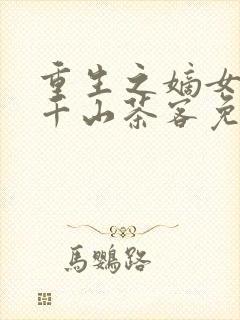 重生之嫡女
千山茶客免
馬鸚路